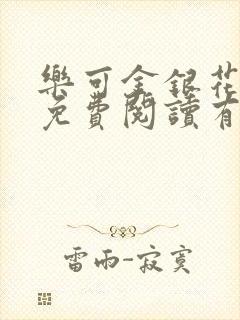 樂可金銀花
免費閱讀有
雷雨-寂寞